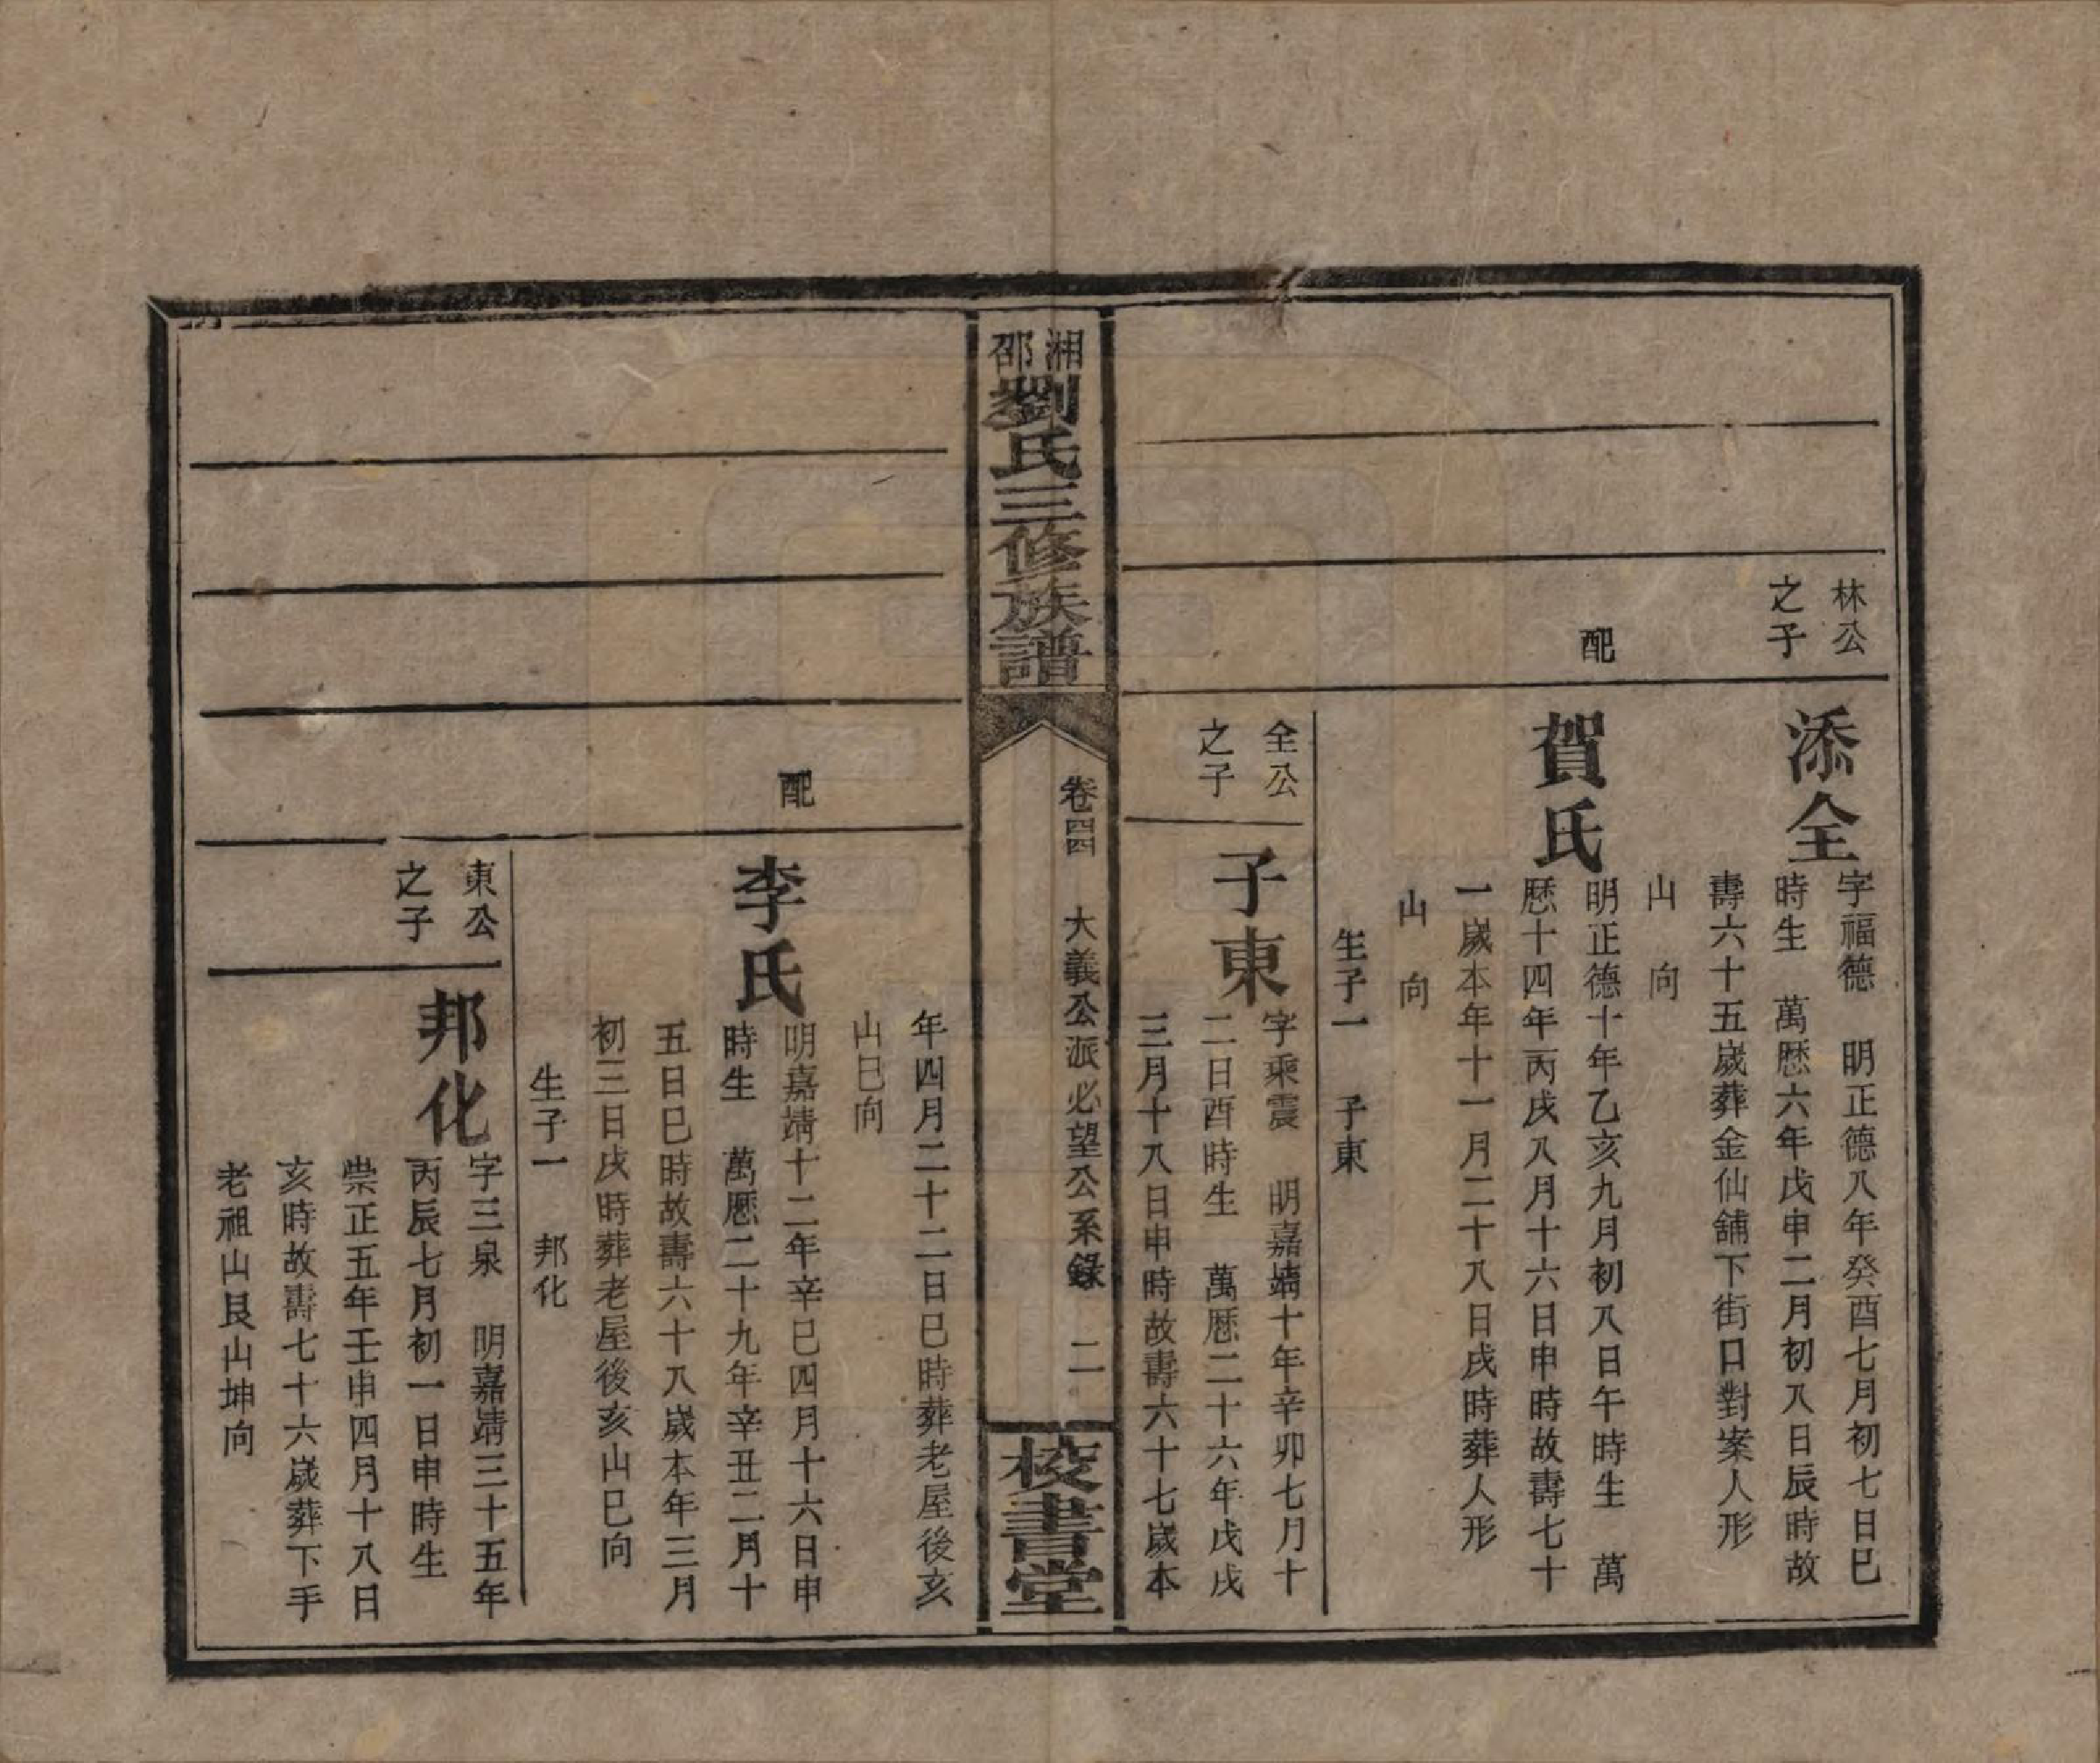 林公
之子
添全
字福德　明正德八年癸酉七月初七日巳
時生　萬厯六年戊申二月初八日辰時故
壽六十五歲葬金仙舖下街口對案人形
山　向
配
賀氏
明正德十年乙亥九月初八日午時生　萬
厯十四年丙戌八月十六日申時故壽七十
一歲本年十一月二十八日戌時葬人形
山　向
生子一　子東
全公
之子
子東
字乘震　明嘉靖十年辛卯七月十
二日酉時生　萬厯二十六年戊戌
三月十八日申時故壽六十七歲本
湘邵
劉氏三修族譜
卷四四　大義公派必望公系錄　二
校書堂
年四月二十二日巳時葬老屋後亥
山巳向
配
李氏
明嘉靖十二年辛巳四月十六日申
時生　萬厯二十九年辛丑二月十
五日巳時故壽六十八歲本年三月
初三日戌時葬老屋後亥山巳向
生子一　邦化
東公
之子
邦化
字三泉　明嘉靖三十五年
丙辰七月初一日申時生
崇正五年壬申四月十八日
亥時故壽七十六歲葬下手
老祖山艮山坤向